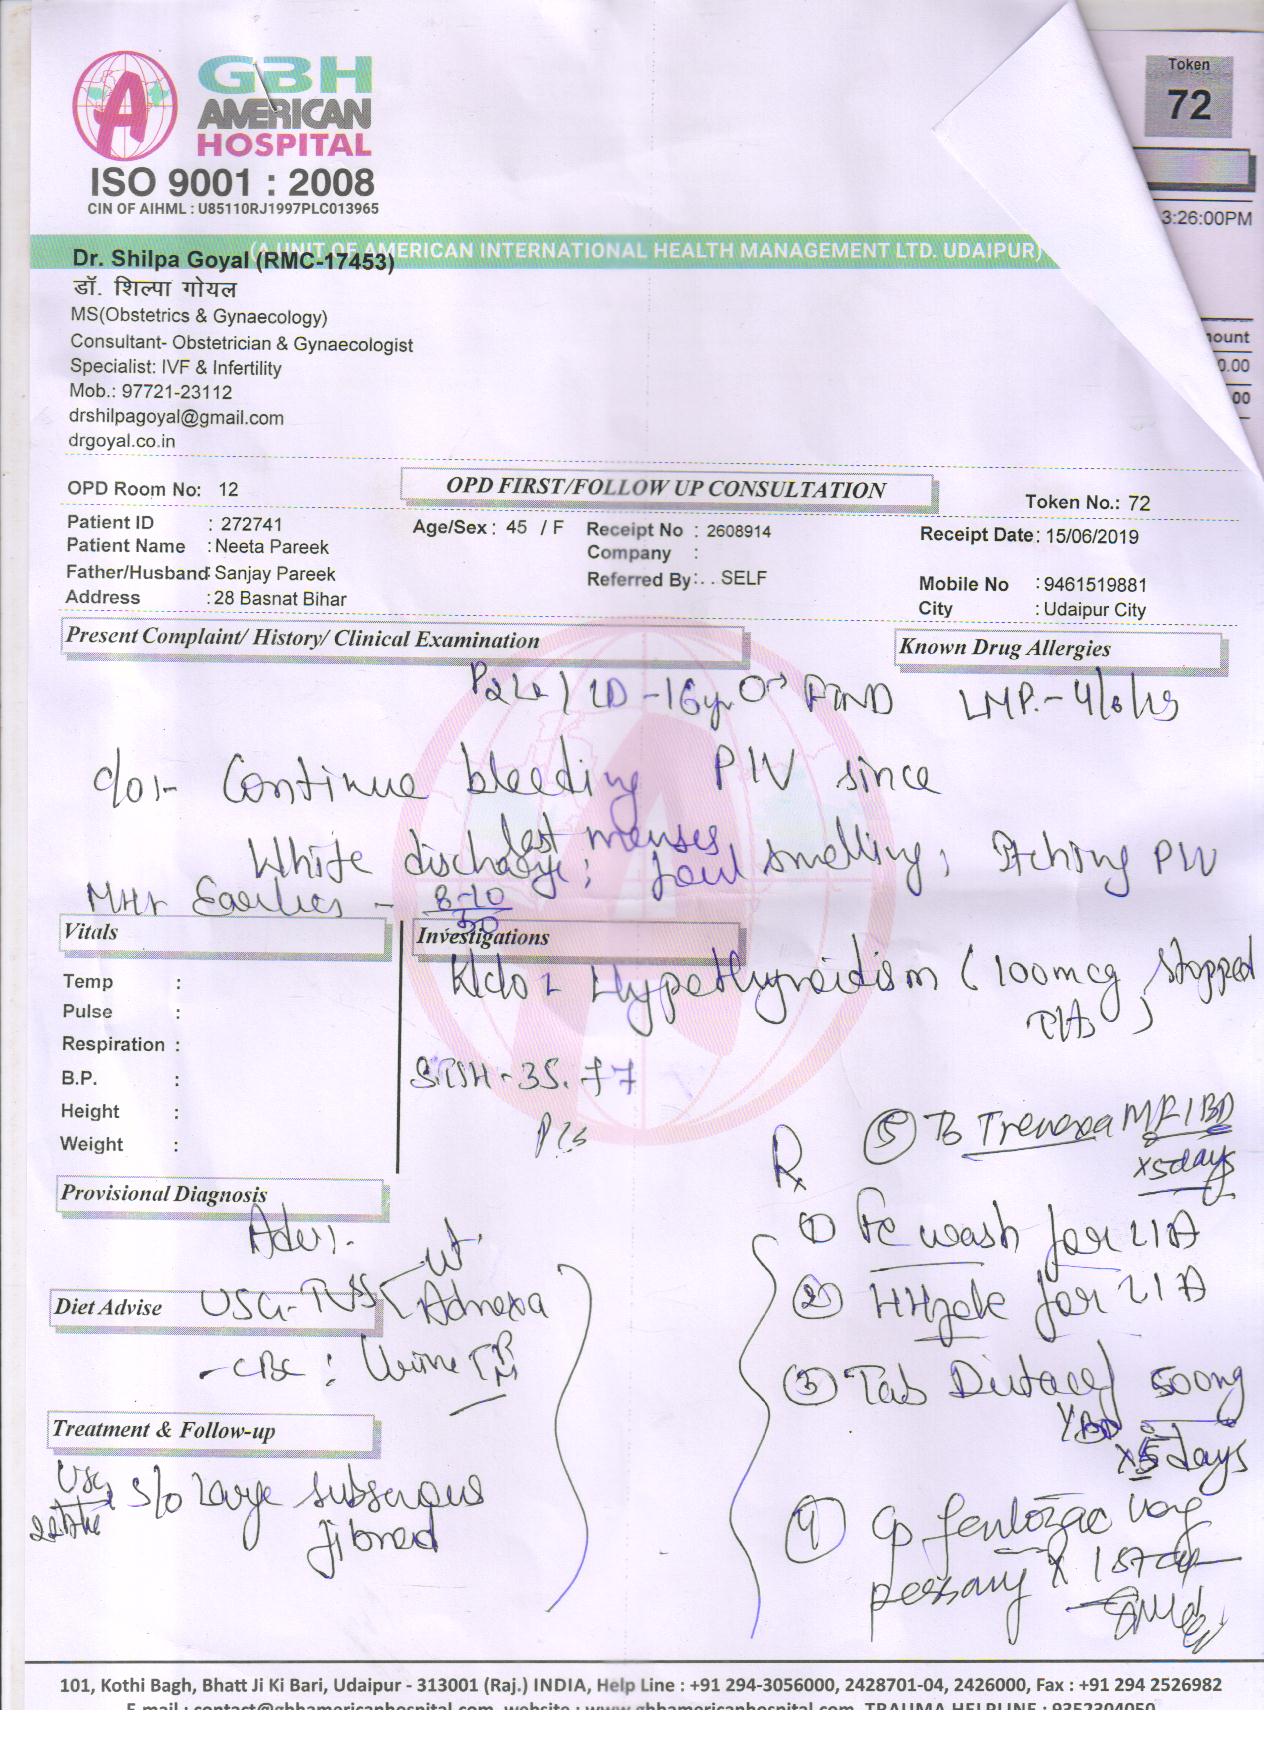 GBH
AMERICAN
HOSPITAL
ISO 9001 : 2008
CIN OF AIHML : U85110RJ1997PLC013965
Token
72
3:26:00PM
(A UNIT OF AMERICAN INTERNATIONAL HEALTH MANAGEMENT LTD. UDAIPUR)
Dr. Shilpa Goyal (RMC-17453)
डॉ. शिल्पा गोयल
MS(Obstetrics & Gynaecology)
Consultant- Obstetrician & Gynaecologist
Specialist: IVF & Infertility
Mob.: 97721-23112
drshilpagoyal@gmail.com
drgoyal.co.in
ount
0.00
00
OPD Room No: 12
OPD FIRST/FOLLOW UP CONSULTATION
Token No.: 72
Patient ID : 272741
Age/Sex : 45 / F
Receipt No : 2608914
Receipt Date: 15/06/2019
Patient Name : Neeta Pareek
Company :
Father/Husband: Sanjay Pareek
Referred By: . . SELF
Mobile No : 9461519881
Address : 28 Basnat Bihar
City : Udaipur City
Present Complaint/ History/ Clinical Examination
Known Drug Allergies
P2L2 / LD - 16yr FTND LMP.- 4/6/19
c/o:- Continue bleeding P/V since
last menses
White discharge; foul smelling; Itching P/V
Earlier - 8-10/30
Vitals
Investigations
K/c/o Hypothyroidism (100mcg stopped
Temp :
Pulse :
Respiration :
B.P. :
Height :
Weight :
S.TSH - 35.77
P/S
Rx
(5) Tb Trenexa MF 1 BD
x5days
Provisional Diagnosis
Adv:-
(1) wash for L/A
Diet Advise
USG-TVS < Ut
Adnexa
(2) for L/A
- CBC ; Urine
(3) Tab 500mg
BD
x5days
Treatment & Follow-up
USG s/o Large subserous
fibroid
(4) Cp vag
pessary x 1 stat
101, Kothi Bagh, Bhatt Ji Ki Bari, Udaipur - 313001 (Raj.) INDIA, Help Line : +91 294-3056000, 2428701-04, 2426000, Fax : +91 294 2526982
E-mail : contact@gbhamericanhospital.com, website : www.gbhamericanhospital.com, TRAUMA HELPLINE : 9352304050